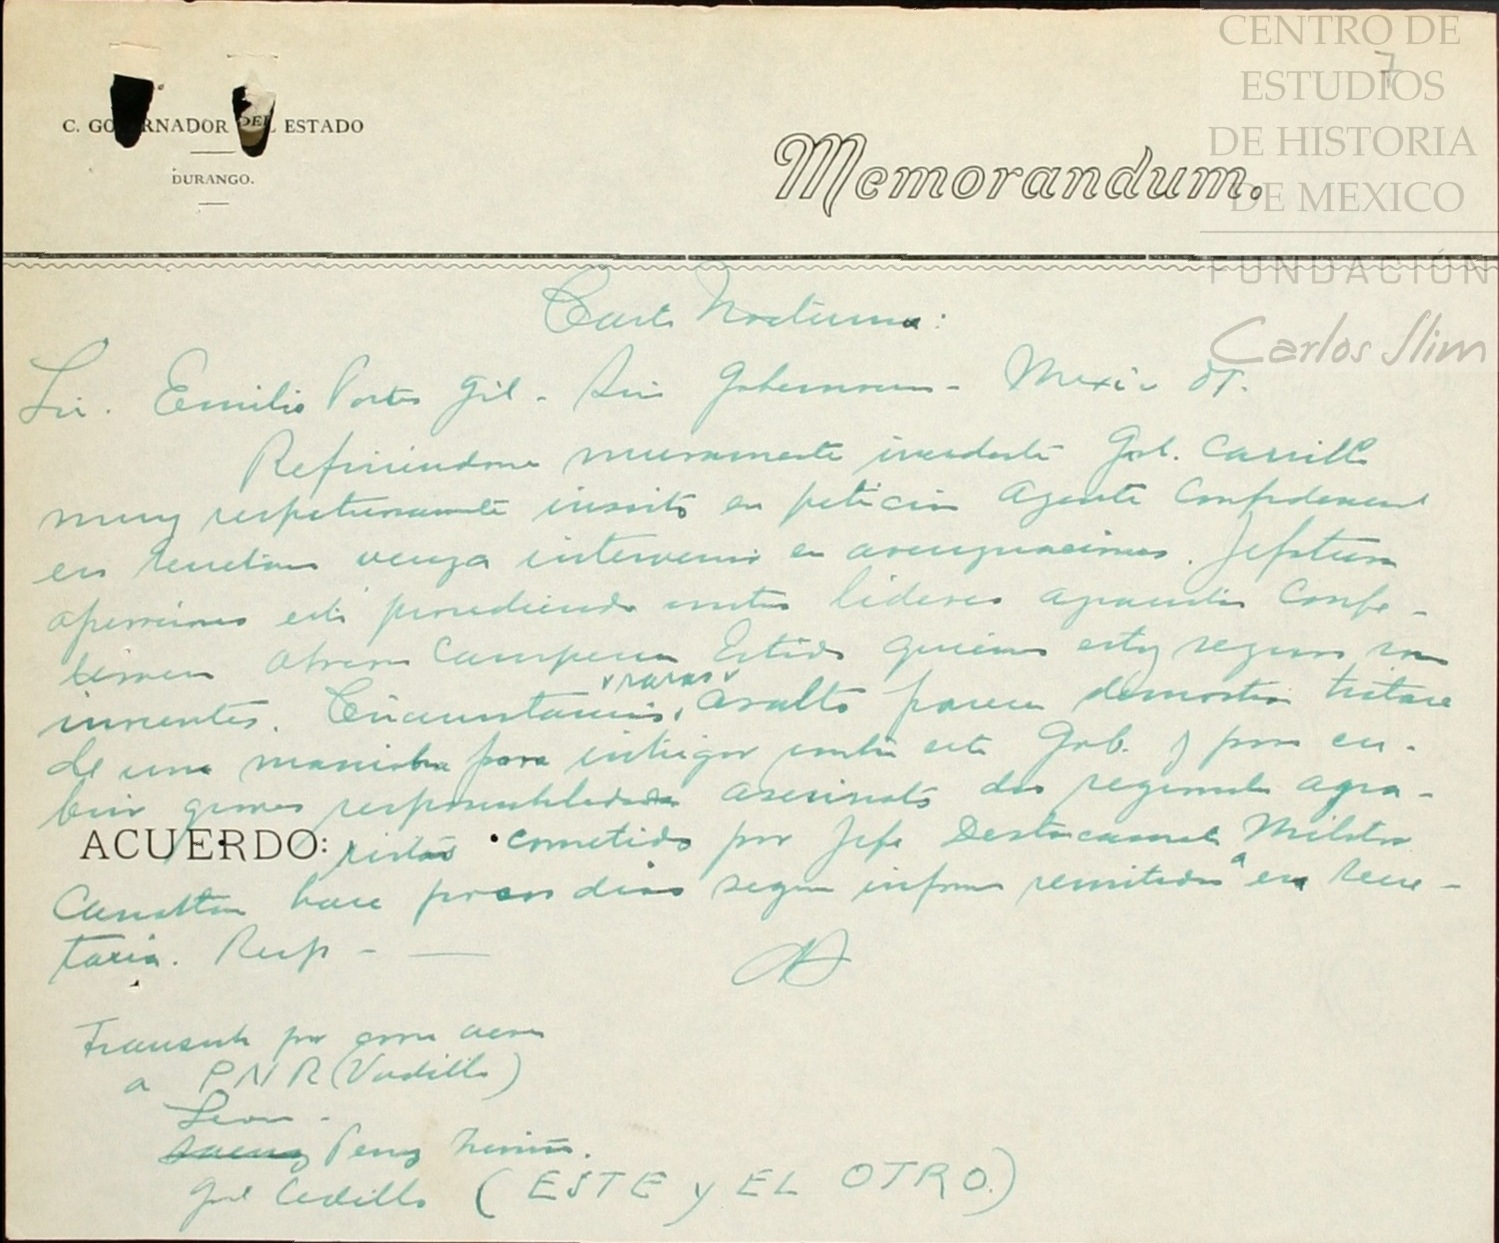 CENTRO DE
ESTUDIOS
DE HISTORIA
DE MEXICO
FUNDACIÓN
Carlos Slim
7
C. GOBERNADOR DEL ESTADO
DURANGO.
Memorandum.
Carta Nocturna:
Lic. Emilio Portes Gil - Srio Gobernacion - Mexico DF.
Refiriendome nuevamente incidente Gral. Carrillo
muy respetuosamente insisto en peticion Agente Confidencial
esa Secretaria venga intervenir en averiguaciones. Jefatura
operaciones está procediendo contra lideres agraristas Confe-
deracion Obrera Campesina Estado quienes estoy seguro son
inocentes. Circunstancias raras asalto parecen demostrar tratarse
de una maniobra para intrigar contra este Gob. y para cu-
brir graves responsabilidades asesinato dos regionales agra-
ACUERDO: ristas cometido por Jefe Destacamento Militar
Canatlan hace pocos dias segun informe remitido a esa Secre-
taria. Resp -
Transcrita por correo aereo
a PNR (Vadillo)
Leon -
Saenz Perez Treviño.
Gral Cedillo (ESTE y EL OTRO.)